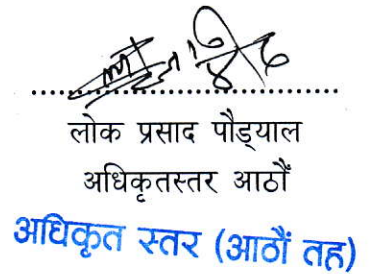 लोक प्रसाद पौड्याल
अधिकृतस्तर आठौं
अधिकृत स्तर (आठौं तह)